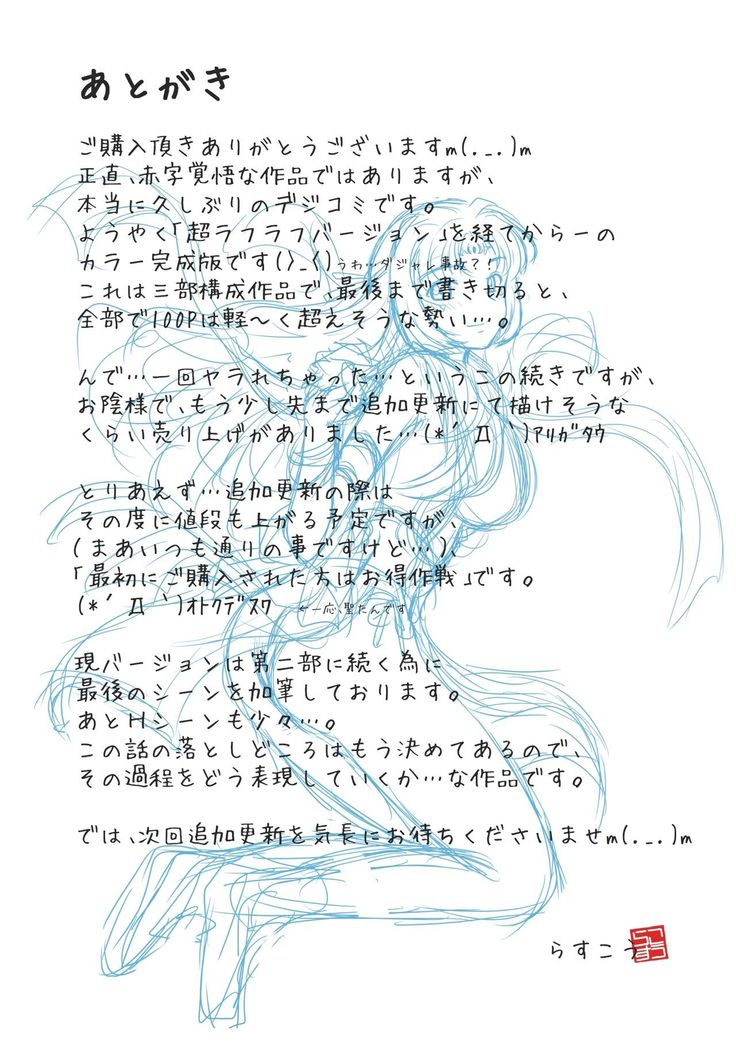 あとがき
ご購入頂きありがとうございますm(._.)m
正直、赤字覚悟な作品ではありますが、
本当に久しぶりのデジコミです。
ようやく「超ラフラフバージョン」を経てからーの
カラー完成版です(>_<)うわ…ダジャレ事故?!
これは三部構成作品で、最後まで書き切ると、
全部で100Pは軽〜く超えそうな勢い…。
んで…一回ヤラれちゃった…というこの続きですが、
お陰様で、もう少し先まで追加更新にて描けそうな
くらい売り上げがありました…(*´Д`)ｱﾘｶﾞﾀｳ
とりあえず…追加更新の際は
その度に値段も上がる予定ですが、
(まあいつも通りの事ですけど…)、
「最初にご購入された方はお得作戦」です。
(*´Д`)ｵﾄｸﾃﾞｽﾜ ←一応、聖たんです
現バージョンは第二部に続く為に
最後のシーンを加筆しております。
あとHシーンも少々…。
この話の落としどころはもう決めてあるので、
その過程をどう表現していくか…な作品です。
では、次回追加更新を気長にお待ちくださいませm(._.)m
らすこう